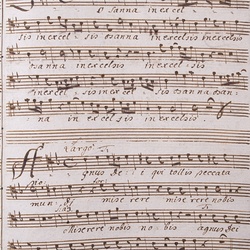 O sanna in excel
sis in excel sis osanna in excelsis in excelsis
osanna in excelsis in excelsis
in excel sis in excel sis osanna
na in excelsis in excelsis.
Largo
Agnus de i qui tollis peccata
mun di mise rere mise rere nobis
miserere nobis no bis agnus dei